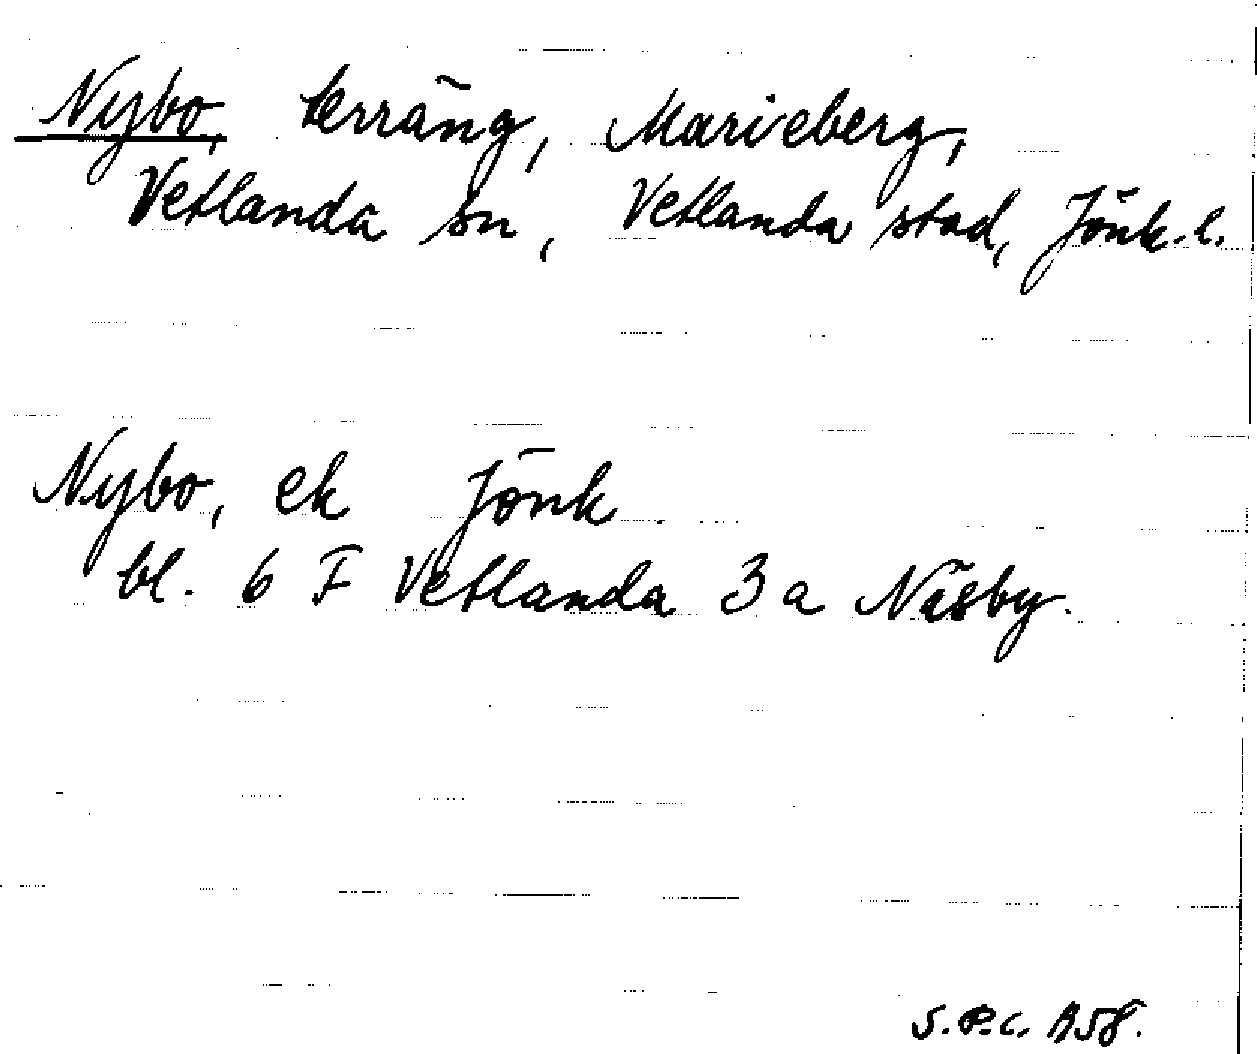 Nybo, terräng, Marieberg,
Vetlanda sn, Vetlanda stad, Jönk. l.
Nybo, ek Jönk
bl. 6 F Vetlanda 3 a Näsby.
S.P.C. A58.